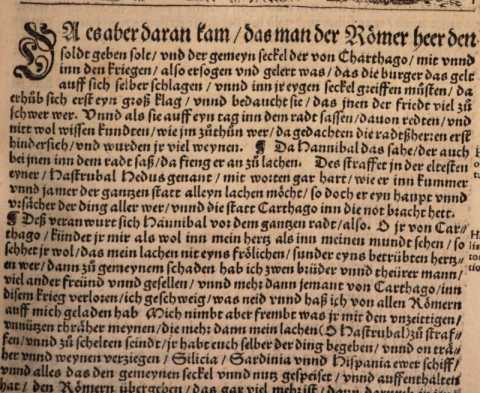 DA es aber daran kam / das man der Römer heer den
soldt geben solt / vnd der gemeyn seckel der von Charthago / mit vnnd
inn den kriegen / also ersogen vnd gelert was / das die burger das gelt
auff sich selber schlagen / vnnd inn jr eygen seckel greiffen müsten / da
erhůb sich erst eyn groß klag / vnnd bedaucht sie / das jnen der friedt viel zů
schwer wer. Vnnd als sie auff eyn tag inn dem radt sassen / dauon redten / vnd
nitt wol wissen kundten / wie jm zůthůn wer / da gedachten die radtßherren erst
hindersich / vnd wurden jr viel weynen. ¶ Da Hannibal das sahe / der auch
bei jnen inn dem radt saß / da fieng er an zů lachen. Des straffet jn der eltesten
eyner / Hastrubal Hedus genant / mit worten gar hart / wie er inn kummer
vnnd jamer der gantzen statt alleyn lachen möcht / so doch er eyn haupt vnnd
vrsächer der ding aller wer / vnnd die statt Carthago inn die not bracht hett.
¶ Deß veranwurt sich Hannibal vor dem gantzen radt / also. O jr von Car-
thago / kündet jr mir als wol inn mein hertz als inn meinen mundt sehen / so
sehet jr wol / das mein lachen nit eyns frölichen / sunder eyns betrübten hertz-
en wer / dann zů gemeynem schaden hab ich zwen brüder vnnd theürer mann /
viel ander freünd vnnd gesellen / vnnd mehr dann jemant von Carthago / inn
disem krieg verloren / ich geschweig / was neid vnnd haß ich von allen Römern
auff mich geladen hab Mich nimbt aber frembt was jr mit den vnzeittigen /
vnnützen thräher meynen / die mehr dann mein lachen (O Hastrubal) zů straf-
fen / vnnd zů schelten seindt / jr habt euch selber der ding begeben / vnnd on trä-
her vnnd weynen verziegen / Silicia / Sardinia vnnd Hispania ewer schiff /
vnnd alles das den gemeynen seckel vnnd nutz gespeiset / vnnd auffenthalten
hat / den Römern übergeben / das gar viel mehr ist /